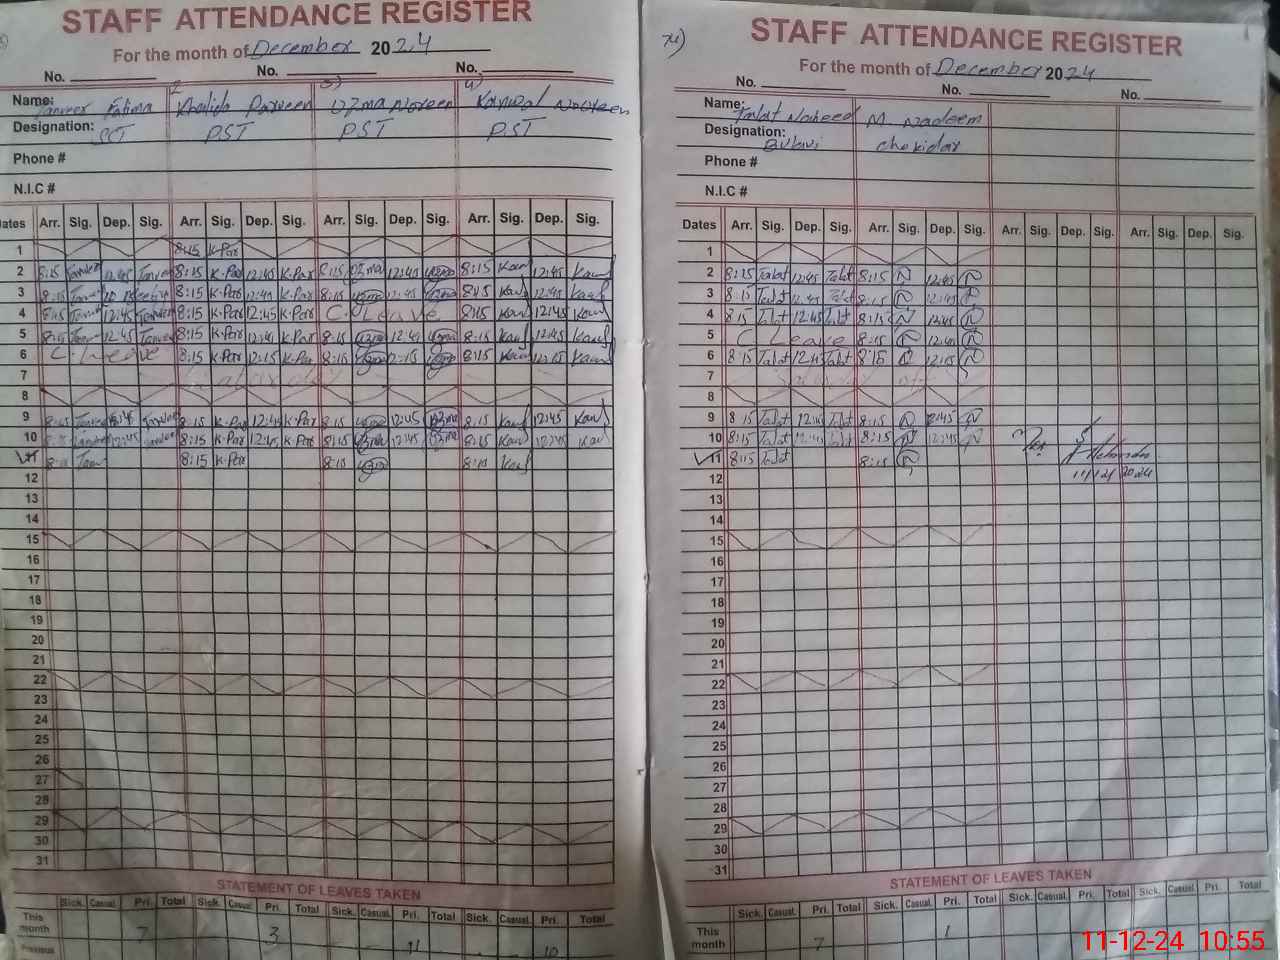 STAFF ATTENDANCE REGISTER
For the month of December 2024
No. No. No.
Name: Tanveer Fatima Khalida Parveen Uzma Noreen Kanwal Noureen
Designation: PST PST PST
Phone #
N.I.C #
Dates Arr. Sig. Dep. Sig. Arr. Sig. Dep. Sig. Arr. Sig. Dep. Sig. Arr. Sig. Dep. Sig.
1 8:15 K-Par
2 8:15 Tanveer 12:45 Tanveer 8:15 K-Par 12:45 K-Par 8:15 Uzma 12:45 Uzma 8:15 Kanw 12:45 Kanw
3 8:15 8:15 K-Par 12:45 K-Par 8:15 Uzma 12:45 Uzma 8:15 Kanw 12:45 Kanw
4 8:15 12:45 Tanveer 8:15 K-Par 12:45 K-Par C. Leave 8:15 Kanw 12:45 Kanw
5 8:15 12:45 8:15 K-Par 12:45 K-Par 8:15 Uzma 12:45 Uzma 8:15 Kanw 12:45 Kanw
6 C Leave 8:15 K-Par 12:15 K-Par 8:15 Uzma 12:15 Uzma 8:15 Kanw Kanw
7
8
9 8:15 8:15 K-Par 12:45 K-Par 8:15 Uzma 12:45 Uzma 8:15 Kanw 12:45 Kanw
10 8:15 12:45 8:15 K-Par 12:45 K-Par 8:15 Uzma 12:45 Uzma 8:15 Kanw 12:45 Kanw
11 8:15 8:15 K-Par 8:15 Uzma 8:15 Kanw
12
13
14
15
16
17
18
19
20
21
22
23
24
25
26
27
28
29
30
31
STATEMENT OF LEAVES TAKEN
Sick. Casual. Pri. Total Sick. Casual. Pri. Total Sick. Casual. Pri. Total Sick. Casual. Pri. Total
This month 7 3 11 10
Previous
STAFF ATTENDANCE REGISTER
For the month of December 2024
No. No. No.
Name: Talat Naheed M Nadeem
Designation: chokidar
Phone #
N.I.C #
Dates Arr. Sig. Dep. Sig. Arr. Sig. Dep. Sig. Arr. Sig. Dep. Sig. Arr. Sig. Dep. Sig.
1
2 8:15 Talat 12:45 Talat 8:15 N 12:45 N
3 8:15 Talat 12:45 Talat 8:15 N 12:45 N
4 8:15 Talat 12:45 Talat 8:15 N 12:45 N
5 C Leave 8:15 N 12:45 N
6 8:15 Talat Talat 8:15 N 12:15 N
7
8
9 8:15 Talat 12:45 Talat 8:15 N 12:45 N
10 8:15 Talat 12:45 Talat 8:15 N 12:45 N
11 8:15 Talat 8:15 N
12 11/12/2024
13
14
15
16
17
18
19
20
21
22
23
24
25
26
27
28
29
30
31
STATEMENT OF LEAVES TAKEN
Sick. Casual. Pri. Total Sick. Casual. Pri. Total Sick. Casual. Pri. Total Sick. Casual. Pri. Total
This month 7 1
11-12-24 10:55